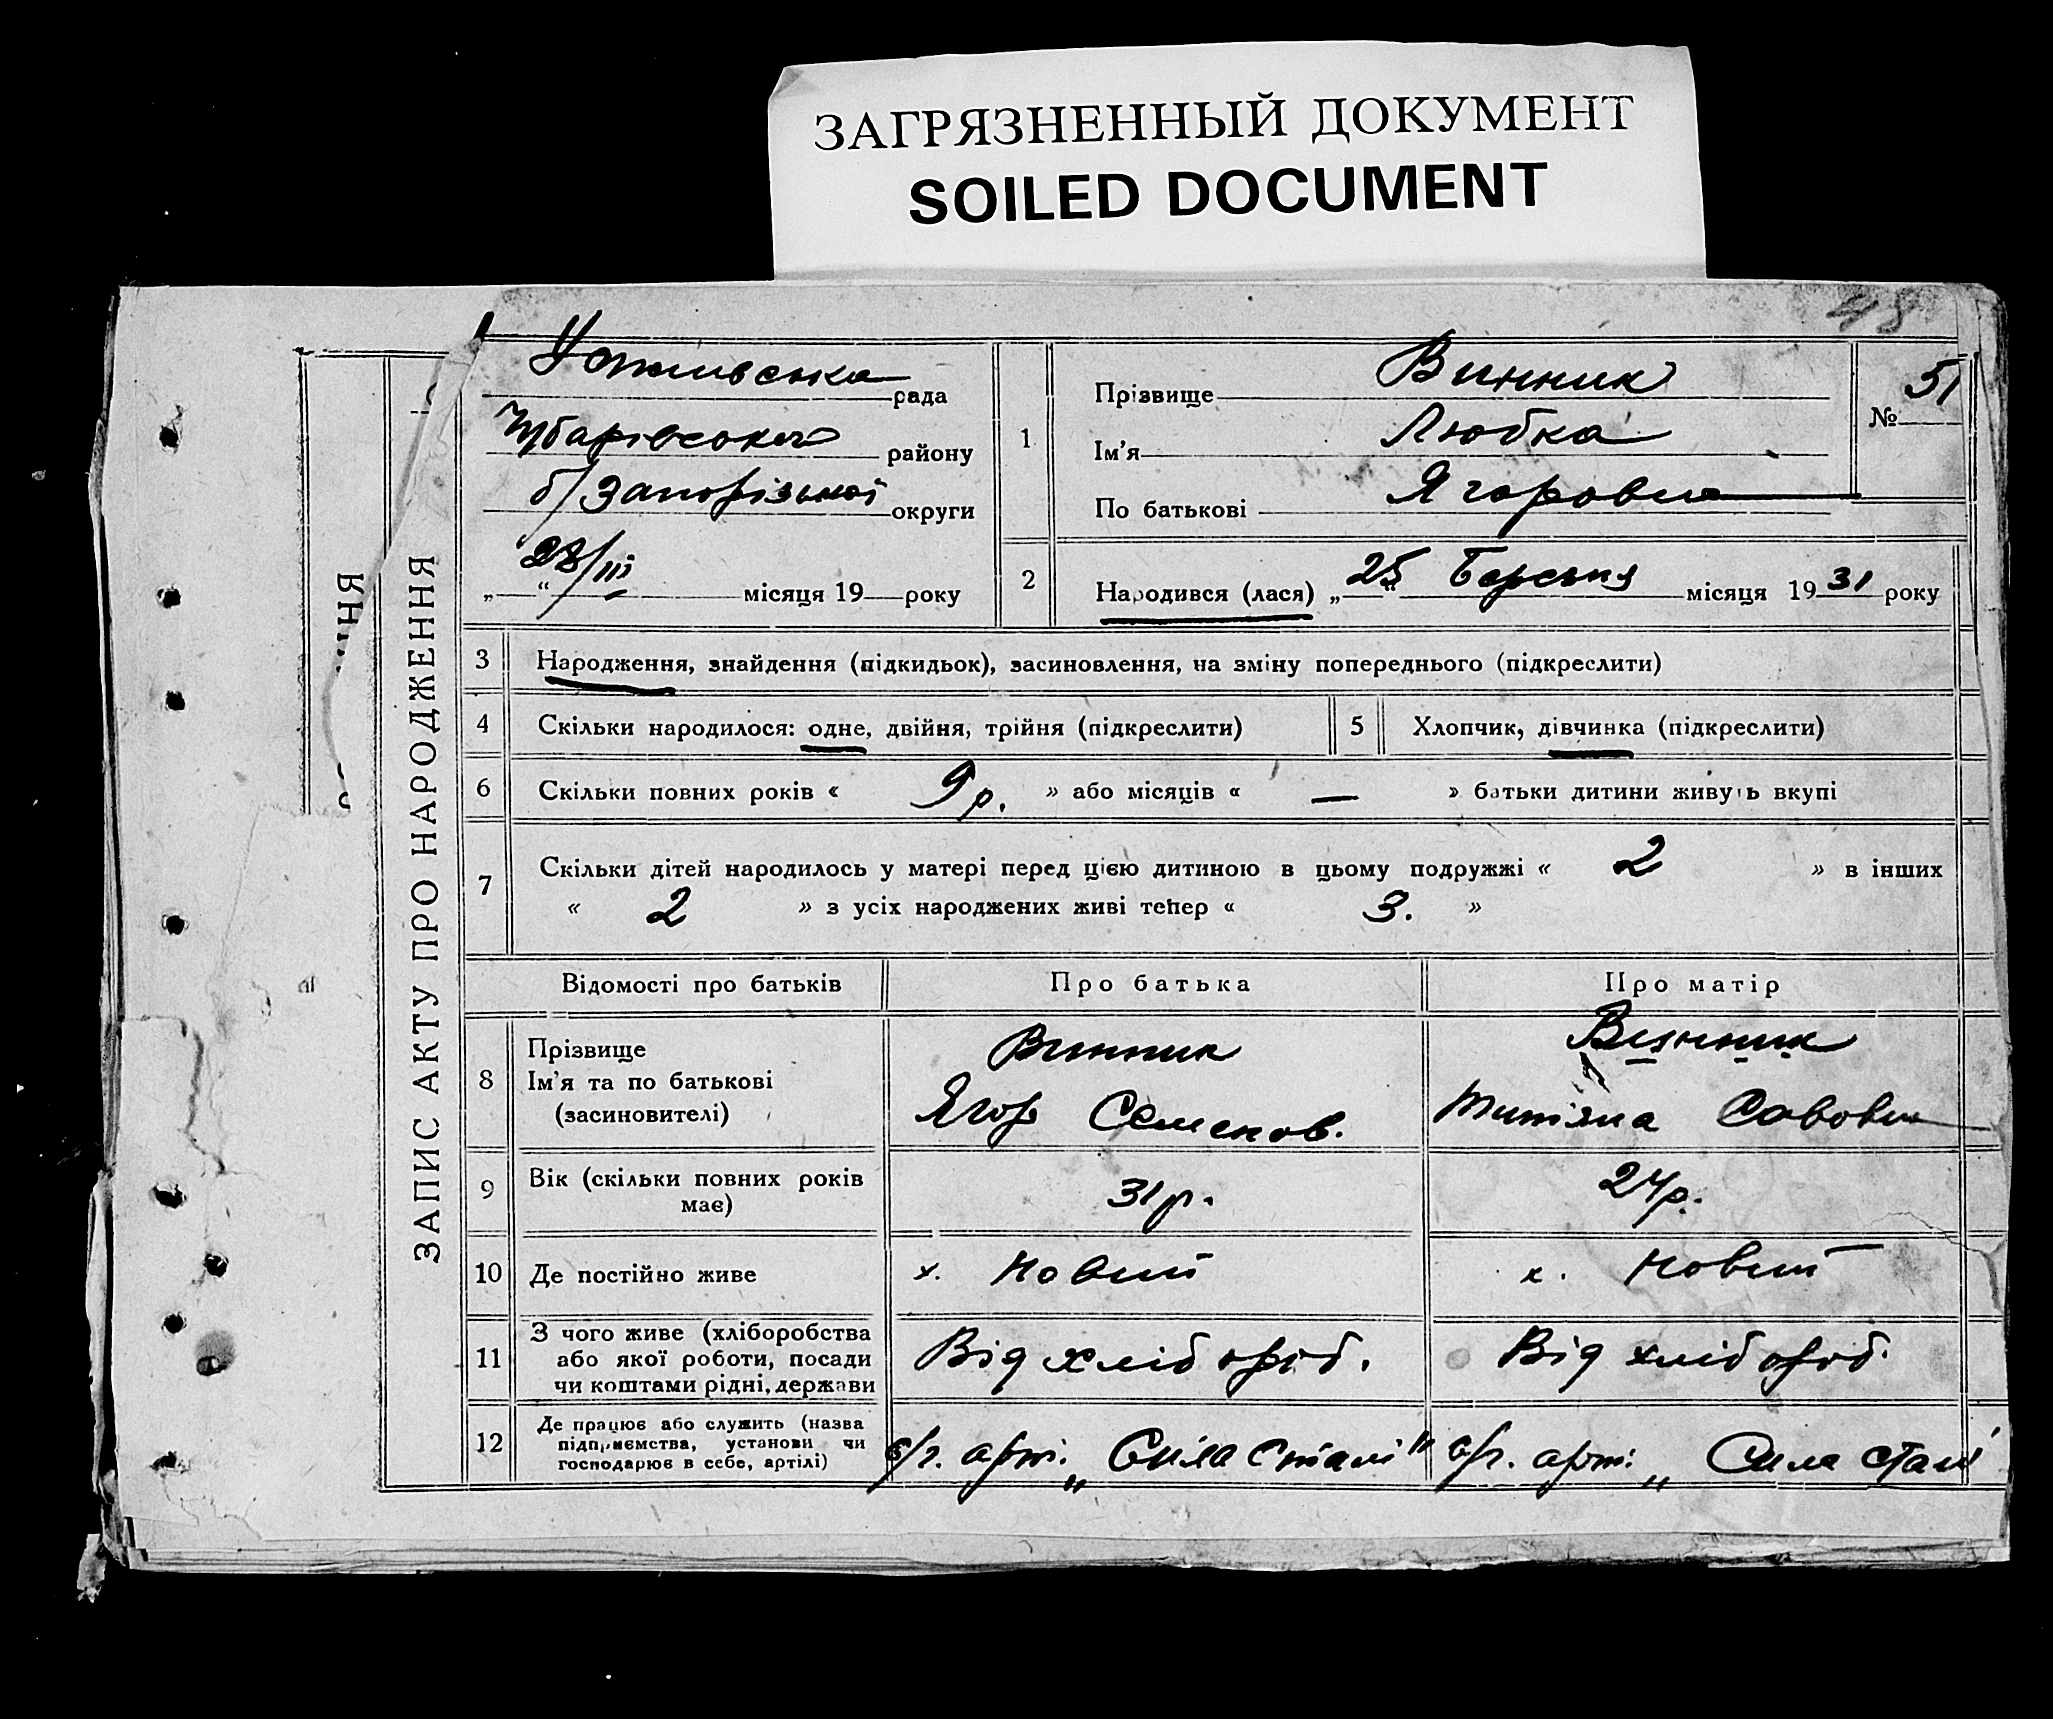 ЗАГРЯЗНЕННЫЙ ДОКУМЕНТ
SOILED DOCUMENT
48
рада
району
б/Запорізької округи
„ “ 28/III місяця 19 року
ЗАПИС АКТУ ПРО НАРОДЖЕННЯ
1 Прізвище Винник
№ 51
Ім’я Любка
По батькові Ягоровна
2 Народився (лася) „25“ Березня місяця 1931 року
3 Народження, знайдення (підкидьок), засиновлення, на зміну попереднього (підкреслити)
4 Скільки народилося: одне, двійня, трійня (підкреслити) 5 Хлопчик, дівчинка (підкреслити)
6 Скільки повних років « 9 р. » або місяців « — » батьки дитини живуть вкупі
7 Скільки дітей народилось у матері перед цією дитиною в цьому подружжі « 2 » в інших
« 2 » з усіх народжених живі тепер « 3. »
Відомості про батьків Про батька Про матір
8 Прізвище Винник Винник
Ім’я та по батькові Ягор Семенов. Савовна
(засиновителі)
9 Вік (скільки повних років 31 р. 24 р.
має)
10 Де постійно живе х. Новий х. Новий
11 З чого живе (хліборобства
або якої роботи, посади Від хлібороб. Від хлібороб.
чи коштами рідні, держави
12 Де працює або служить (назва
підприємства, установи чи с/г. арт. „Сила сталі“ с/г. арт. „Сила сталі
господарює в себе, артілі)